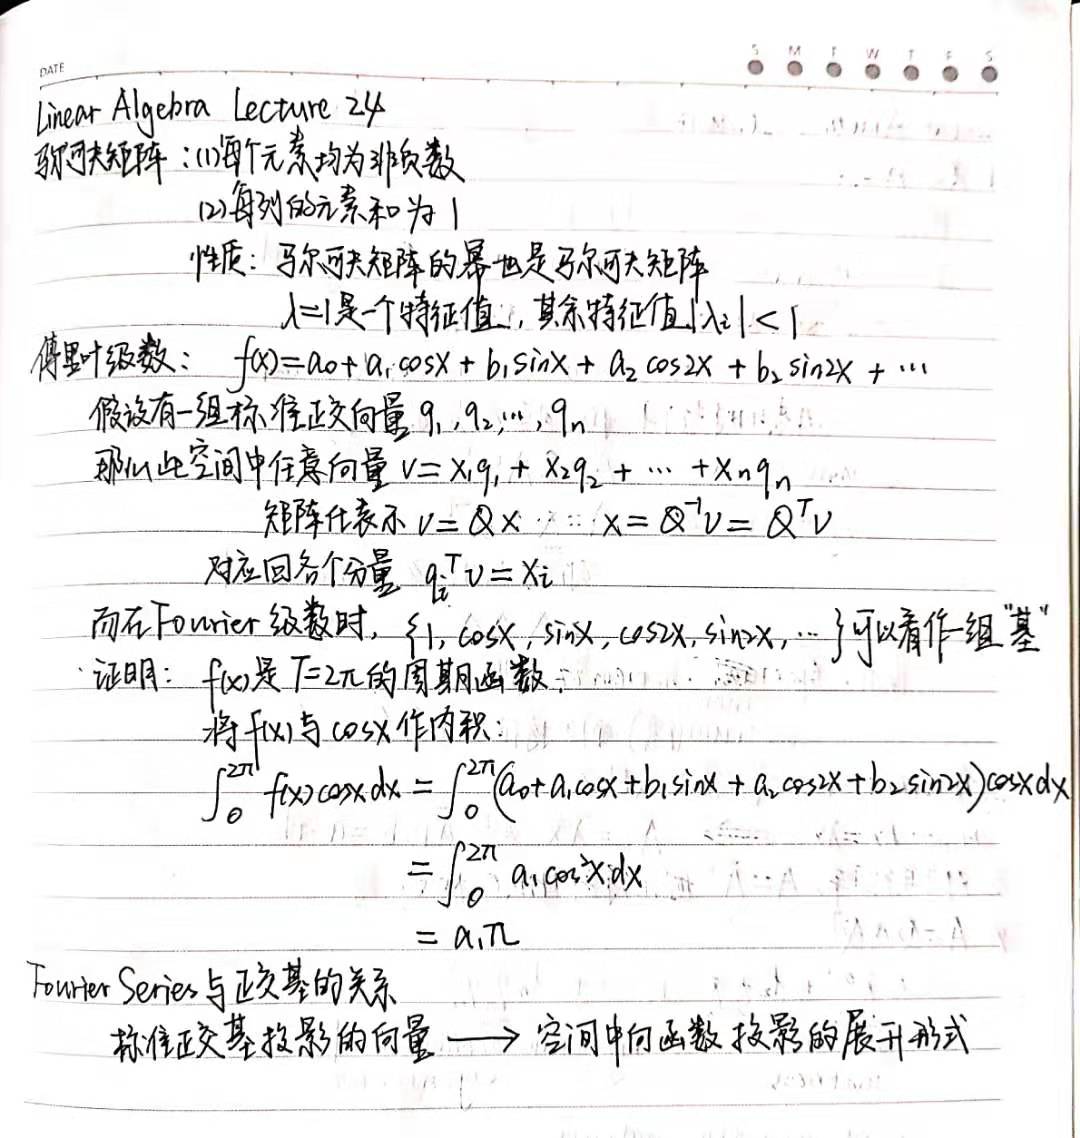 DATE
S M T W T F S
Linear Algebra Lecture 24
马尔可夫矩阵:(1)每个元素均为非负数
(2)每列的元素和为1
性质:马尔可夫矩阵的幂也是马尔可夫矩阵
λ=1是一个特征值,其余特征值|λi|<1
傅里叶级数: f(x)=a₀+a₁cosx+b₁sinx+a₂cos2x+b₂sin2x+…
假设有一组标准正交向量q₁,q₂,…,qn
那么此空间中任意向量v=x₁q₁+x₂q₂+…+xnqn
矩阵化表示 v=Qx x=Q⁻¹v=Qᵀv
对应回各个分量 qiᵀv=xi
而在Fourier级数时,{1,cosx,sinx,cos2x,sin2x,…}可以看作一组"基"
证明: f(x)是T=2π的周期函数:
将f(x)与cosx作内积:
∫₀²π f(x)cosxdx=∫₀²π(a₀+a₁cosx+b₁sinx+a₂cos2x+b₂sin2x)cosxdx
=∫₀²π a₁cos²xdx
=a₁π
Fourier Series与正交基的关系
标准正交基投影的向量⟶空间中向函数投影的展开形式